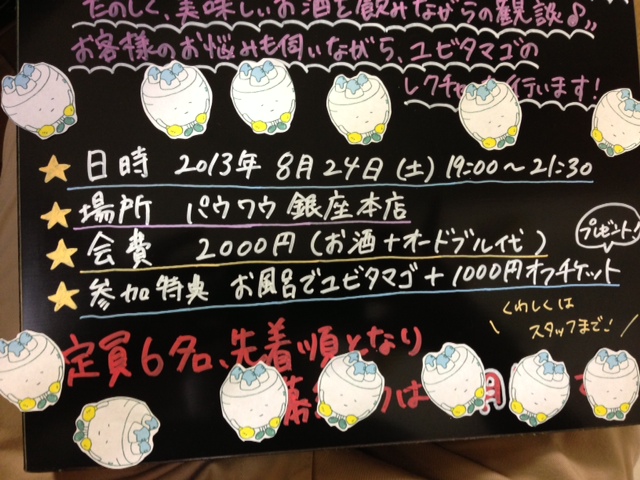 たのしく、美味しいお酒を飲みながらの観談♪
お客様のお悩みも伺いながら、ユビタマゴの
レクチャー 行います!
★日時 2013年 8月24日(土) 19:00〜21:30
★場所 パウワウ 銀座本店
★会費 2000円(お酒+オードブル代)
プレゼント!
★参加特典 お風呂でユビタマゴ+1000円オフチケット
くわしくは
スタッフまで!
定員6名、先着順となり
は 月